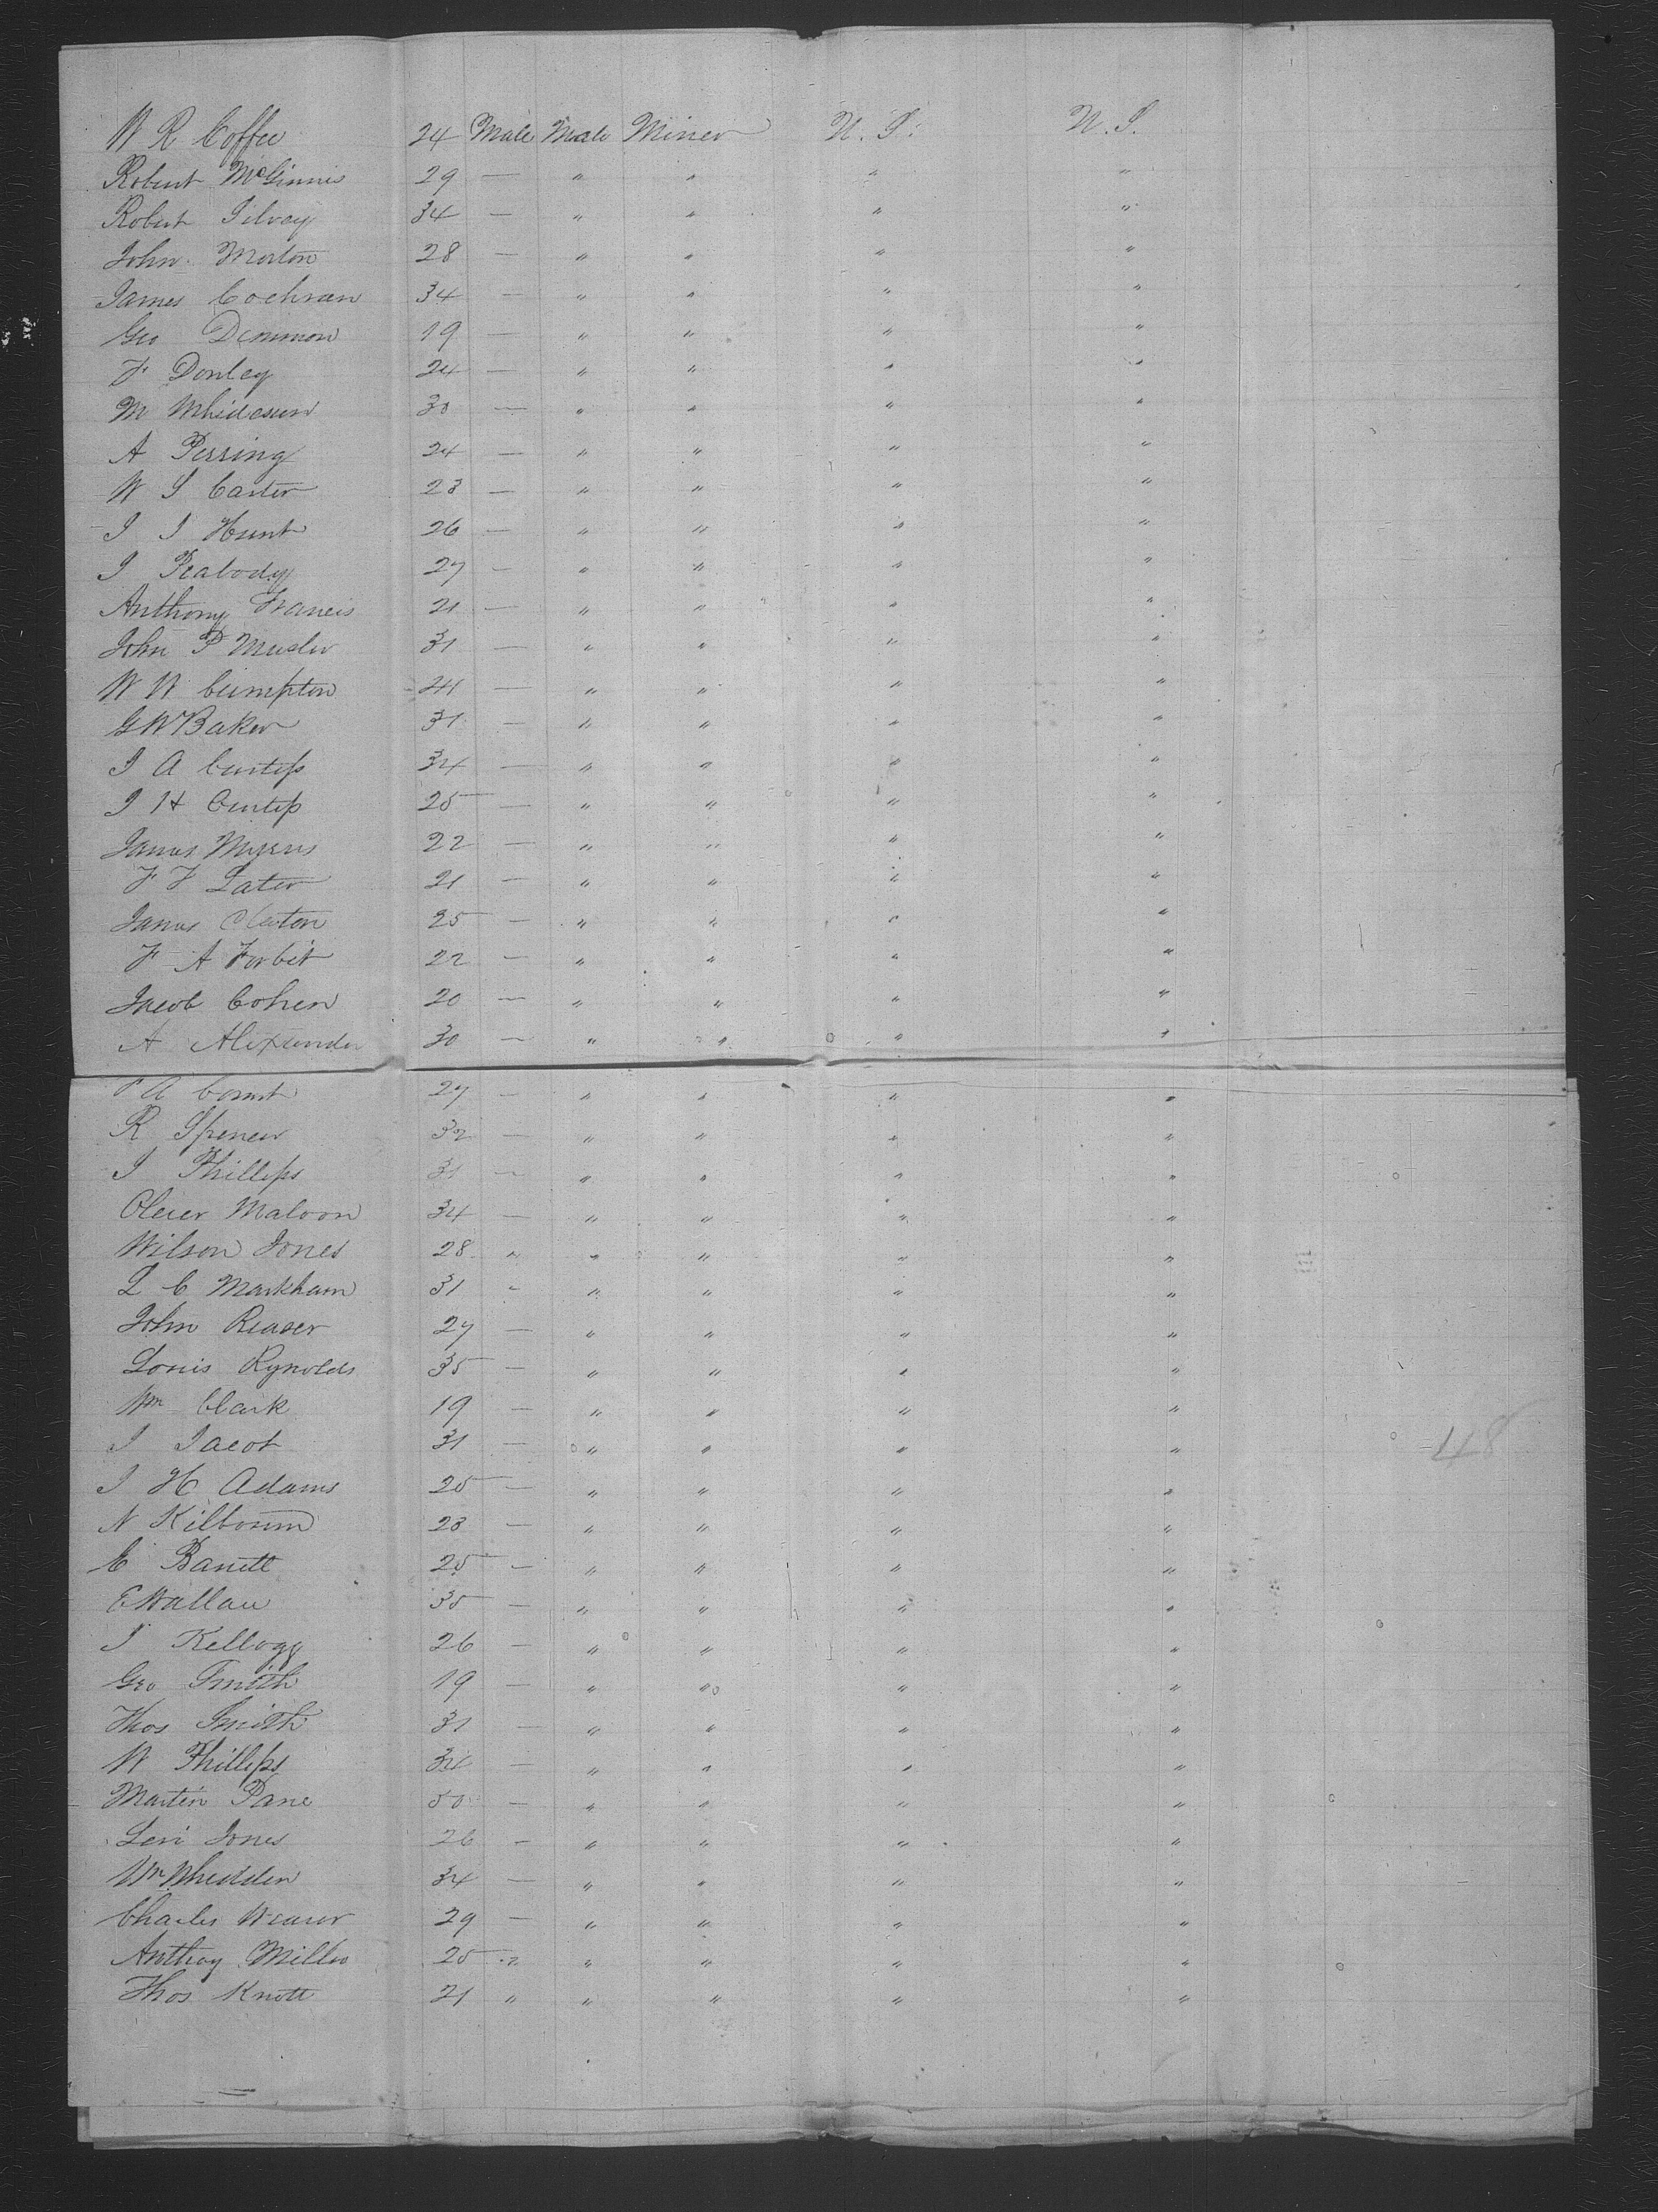 W R Coffee 24 Male Male Miner U. S. U. S.
Robert McGinnis 29 — " " " "
Robert Silvey 34 — " " " "
John Morton 28 — " " " "
James Cochran 34 — " " " "
Geo Denimon 19 — " " " "
F Donley 24 — " " " "
M 30 — " " " "
A Perring 24 — " " " "
W S Carter 23 — " " " "
J J Hunt 26 — " " " "
J Peabody 27 — " " " "
Anthony Francis 21 — " " " "
John P 31 — " " " "
W W Cumpton — " " " "
G W Baker 31 — " " " "
J A Curtiss 34 — " " " "
J H Curtiss 25 — " " " "
James Myers 22 — " " " "
F F Later 21 — " " " "
James Claton 25 — " " " "
F A Forbit 22 — " " " "
Jacob Cohen 20 — " " " "
A Alexander 30 — " " " "
A 27 — " " " "
R Spencer 32 — " " " "
J Phillips 31 — " " " "
Maloon 34 — " " " "
Wilson Jones 28 " " " " "
L C Markham 31 " " " " "
John Reaser 27 — " " " "
Louis Rynolds 35 — " " " "
Wm Clark 19 — " " " "
J Jacot 31 — " " " "
J H Adams 25 — " " " "
N Kilbourn 23 — " " " "
C Barrett 25 — " " " "
E Wallace 35 — " " " "
J Kellogg 26 — " " " "
Geo Smith 19 — " " " "
Thos Smith 31 — " " " "
W Phillips 34 — " " " "
Martin Pane 50 — " " " "
Levi Jones 26 — " " " "
Wm Whedden 34 — " " " "
Charles Weaver 29 — " " " "
Anthoy Miller 25 " " " " "
Thos Knott 21 " " " " "
48